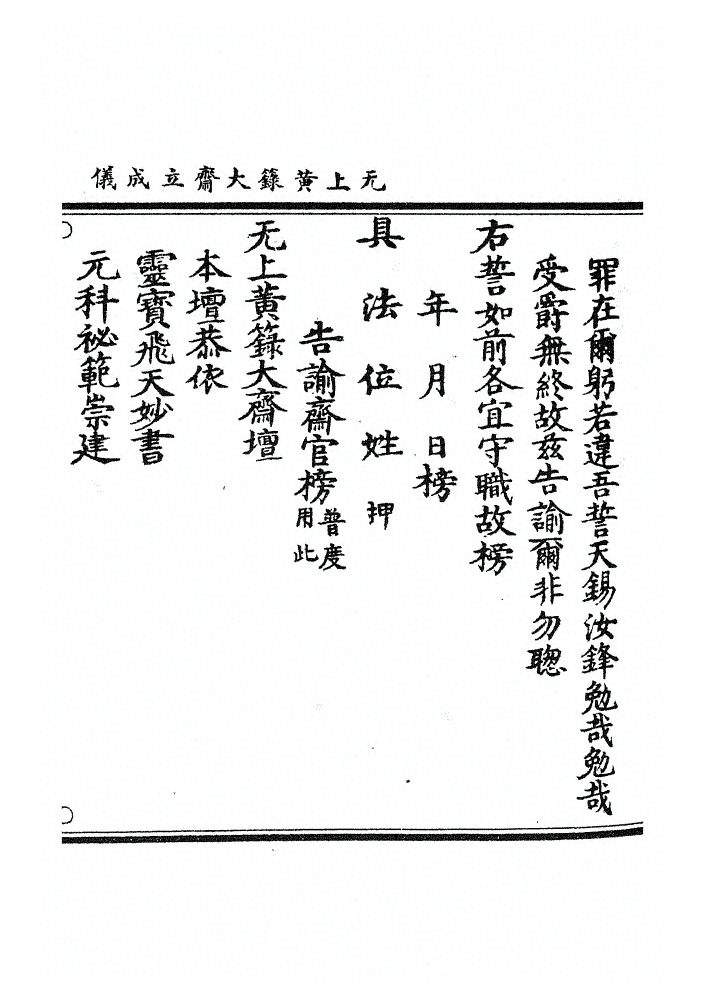 无上黃籙大齋立成儀
罪在爾躬若違吾誓天錫汝鋒勉哉勉哉
受爵無終故茲告諭爾非勿聦
右誓如前各宜守職故榜
年月日榜
具法位姓押
告諭齋官榜普度用此
无上黃籙大齋壇
本壇恭依
靈寶飛天妙書
元科祕範崇建